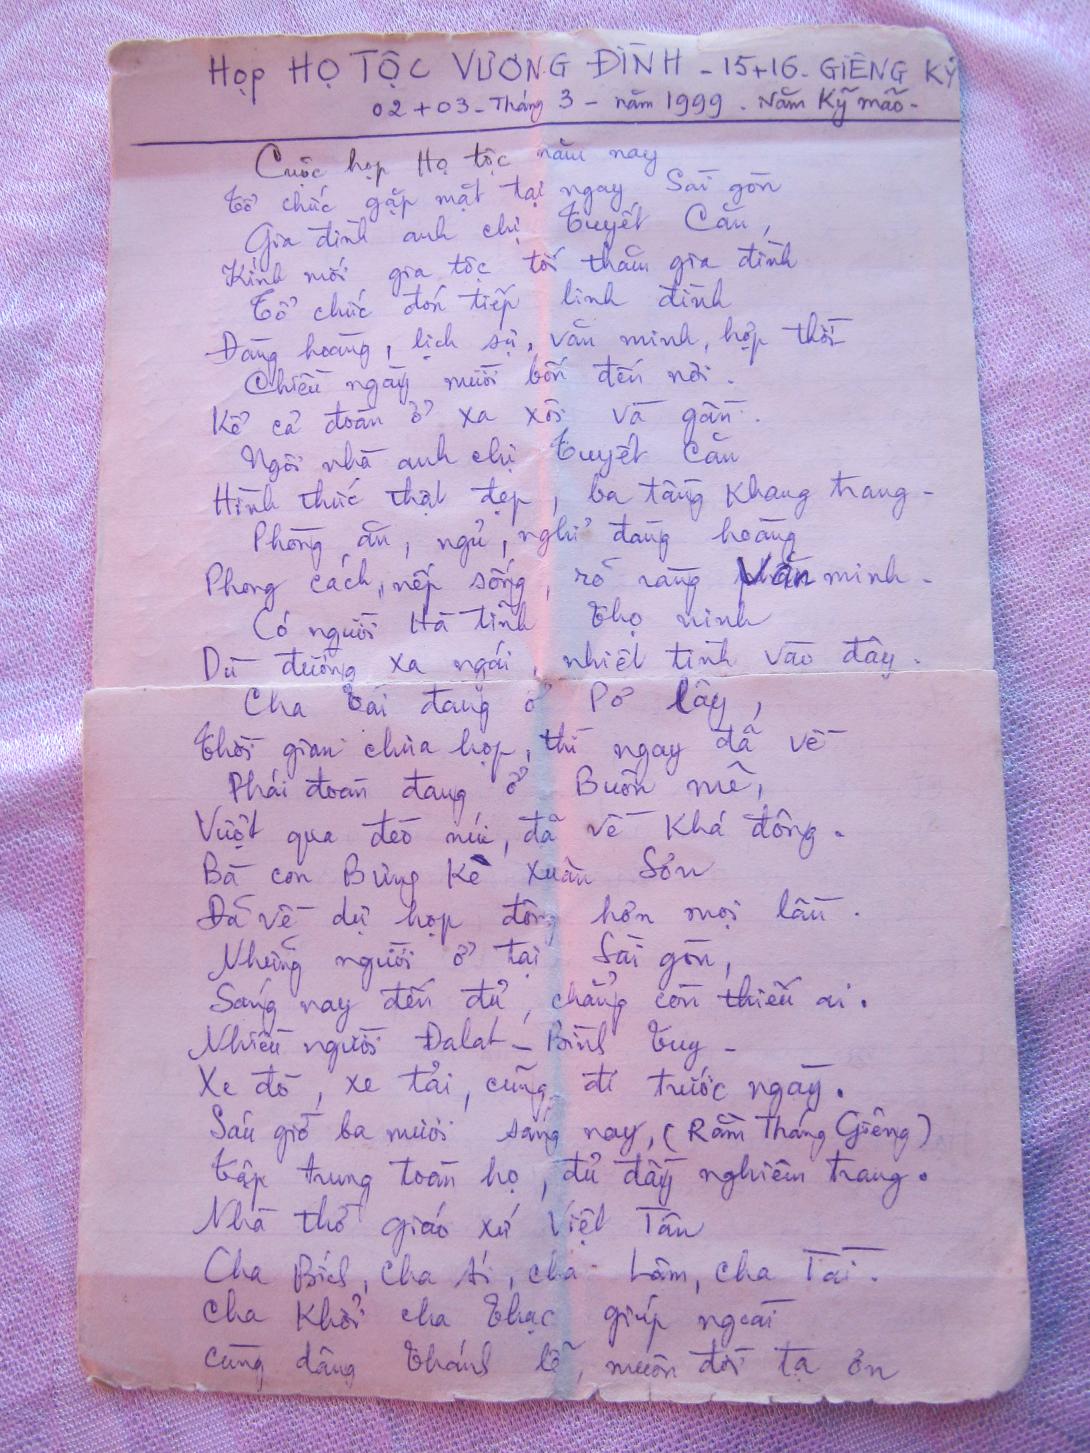 HỌP HỌ TỘC VƯƠNG ĐÌNH - 15+16 - GIÊNG KỶ
02 + 03 - Tháng 3 - năm 1999. Năm Kỹ mão -
Cuộc họp Họ tộc năm nay
Tổ chức gặp mặt tại ngay Sài gòn
Gia đình anh chị Tuyết Cần,
Kính mời gia tộc tới thăm gia đình
Tổ chức đón tiếp linh đình
Đàng hoàng, lịch sự, văn minh, hợp thời
Chiều ngày mười bốn đến nơi.
Kể cả đoàn ở xa xôi và gần.
Ngôi nhà anh chị Tuyết Cần
Hình thức thật đẹp, ba tầng khang trang -
Phòng ăn, ngủ, nghỉ đàng hoàng
Phong cách, nếp sống, rõ ràng Văn minh -
Có người Hà tĩnh Thọ ninh
Dù đường xa ngái, nhiệt tình vào đây.
Cha Tài đang ở Pơ lây,
Thời gian chưa họp, thì ngay đã về
Phái đoàn đang ở Buôn mê,
Vượt qua đèo núi, đã về khá đông.
Bà con Bừng Kè Xuân Sơn
Đã về dự họp đông hơn mọi lần.
Những người ở tại Sài gòn,
Sáng nay đến đủ, chẳng còn thiếu ai.
Nhiều người Đalat - Bình Tuy -
Xe đò, xe tải, cũng đi trước ngày.
Sáu giờ ba mươi sáng nay, (Rằm Tháng Giêng)
Tập trung toàn họ, đủ đầy nghiêm trang.
Nhà thờ giáo xứ Việt Tân
Cha Bích, cha Ái, cha Lâm, cha Tài.
Cha Khởi cha Thạc giúp ngoài
Cùng dâng Thánh lễ, muôn đời tạ ơn